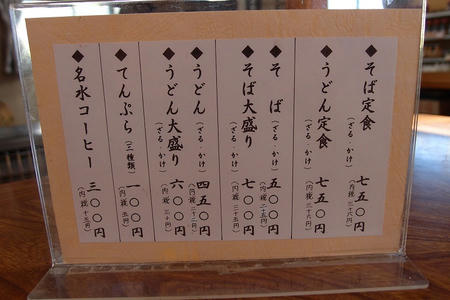 ◆そば定食(ざる・かけ)七五〇円(内税三十六円)
◆うどん定食(ざる・かけ)七五〇円(内税三十六円)
◆そば(ざる・かけ)五〇〇円(内税二十五円)
◆そば大盛り(ざる・かけ)七〇〇円(内税三十五円)
◆うどん(ざる・かけ)四五〇円(内税二十二円)
◆うどん大盛り(ざる・かけ)六〇〇円(内税三十円)
◆てんぷら(三種類)一〇〇円(内税五円)
◆名水コーヒー三〇〇円(内税十五円)